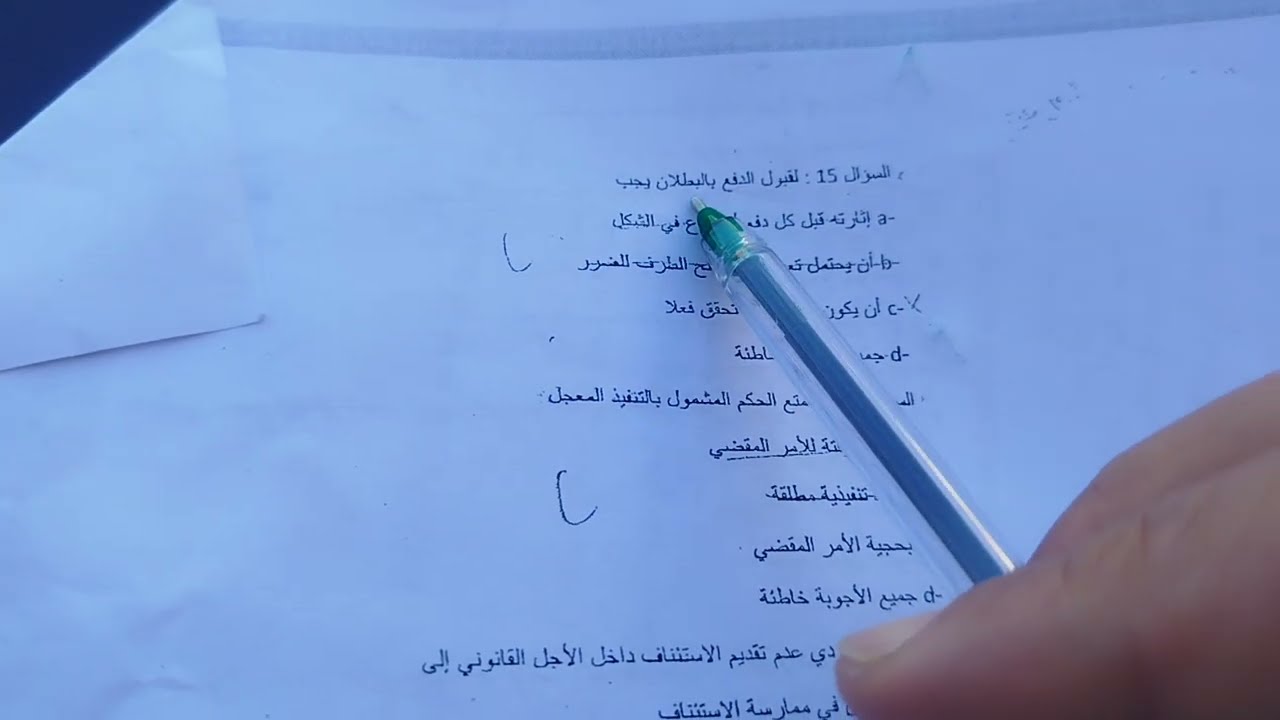 السؤال 15 : لقبول الدفع بالبطلان يجب
a- إثارته قبل كل دفع في الشكل
b- أن يحتمل الطرف للضرر
c- أن يكون تحقق فعلا
d-
الحكم المشمول بالتنفيذ المعجل
للأمر المقضي
تنفيذية مطلقة
بحجية الأمر المقضي
d- جميع الأجوبة خاطئة
عدم تقديم الاستئناف داخل الأجل القانوني إلى
في ممارسة الاستئناف